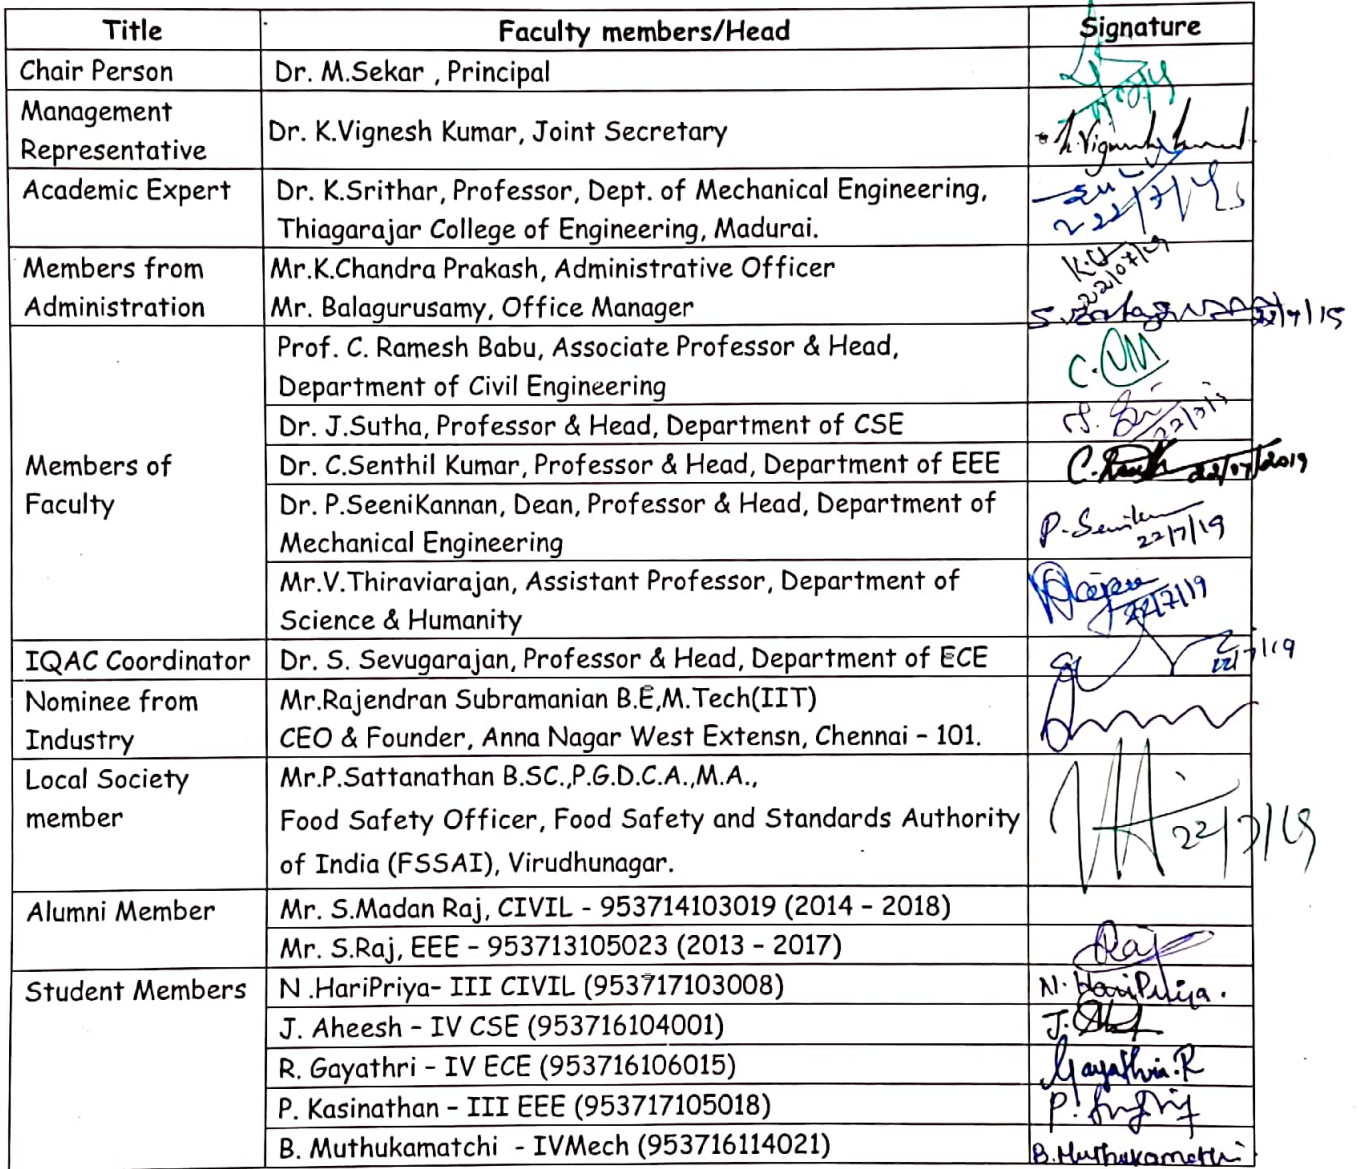 Title Faculty members/Head Signature
Chair Person Dr. M.Sekar , Principal
Management
Representative
Dr. K.Vignesh Kumar, Joint Secretary K.Vignesh Kumar
Academic Expert Dr. K.Srithar, Professor, Dept. of Mechanical Engineering,
Thiagarajar College of Engineering, Madurai. 22/7/19
Members from
Administration
Mr.K.Chandra Prakash, Administrative Officer 22/07/19
Mr. Balagurusamy, Office Manager
Members of
Faculty
Prof. C. Ramesh Babu, Associate Professor & Head,
Department of Civil Engineering
Dr. J.Sutha, Professor & Head, Department of CSE
Dr. C.Senthil Kumar, Professor & Head, Department of EEE 22/07/2019
Dr. P.SeeniKannan, Dean, Professor & Head, Department of
Mechanical Engineering 22/7/19
Mr.V.Thiraviarajan, Assistant Professor, Department of
Science & Humanity 22/7/19
IQAC Coordinator Dr. S. Sevugarajan, Professor & Head, Department of ECE 22/7/19
Nominee from
Industry
Mr.Rajendran Subramanian B.E,M.Tech(IIT)
CEO & Founder, Anna Nagar West Extensn, Chennai - 101.
Local Society
member
Mr.P.Sattanathan B.SC.,P.G.D.C.A.,M.A.,
Food Safety Officer, Food Safety and Standards Authority 22/7/19
of India (FSSAI), Virudhunagar.
Alumni Member Mr. S.Madan Raj, CIVIL - 953714103019 (2014 - 2018)
Mr. S.Raj, EEE - 953713105023 (2013 - 2017) Raj
Student Members N .HariPriya- III CIVIL (953717103008) N. HariPriya.
J. Aheesh - IV CSE (953716104001)
R. Gayathri - IV ECE (953716106015) Gayathri.R
P. Kasinathan - III EEE (953717105018)
B. Muthukamatchi - IVMech (953716114021) B.Muthukamatchi